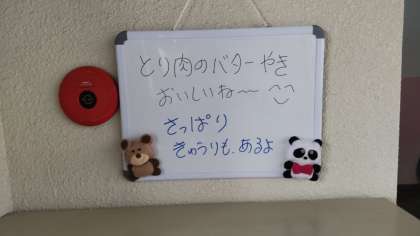 とり肉のバターやき
おいしいね〜 ^^
さっぱり
きゅうりも、あるよ